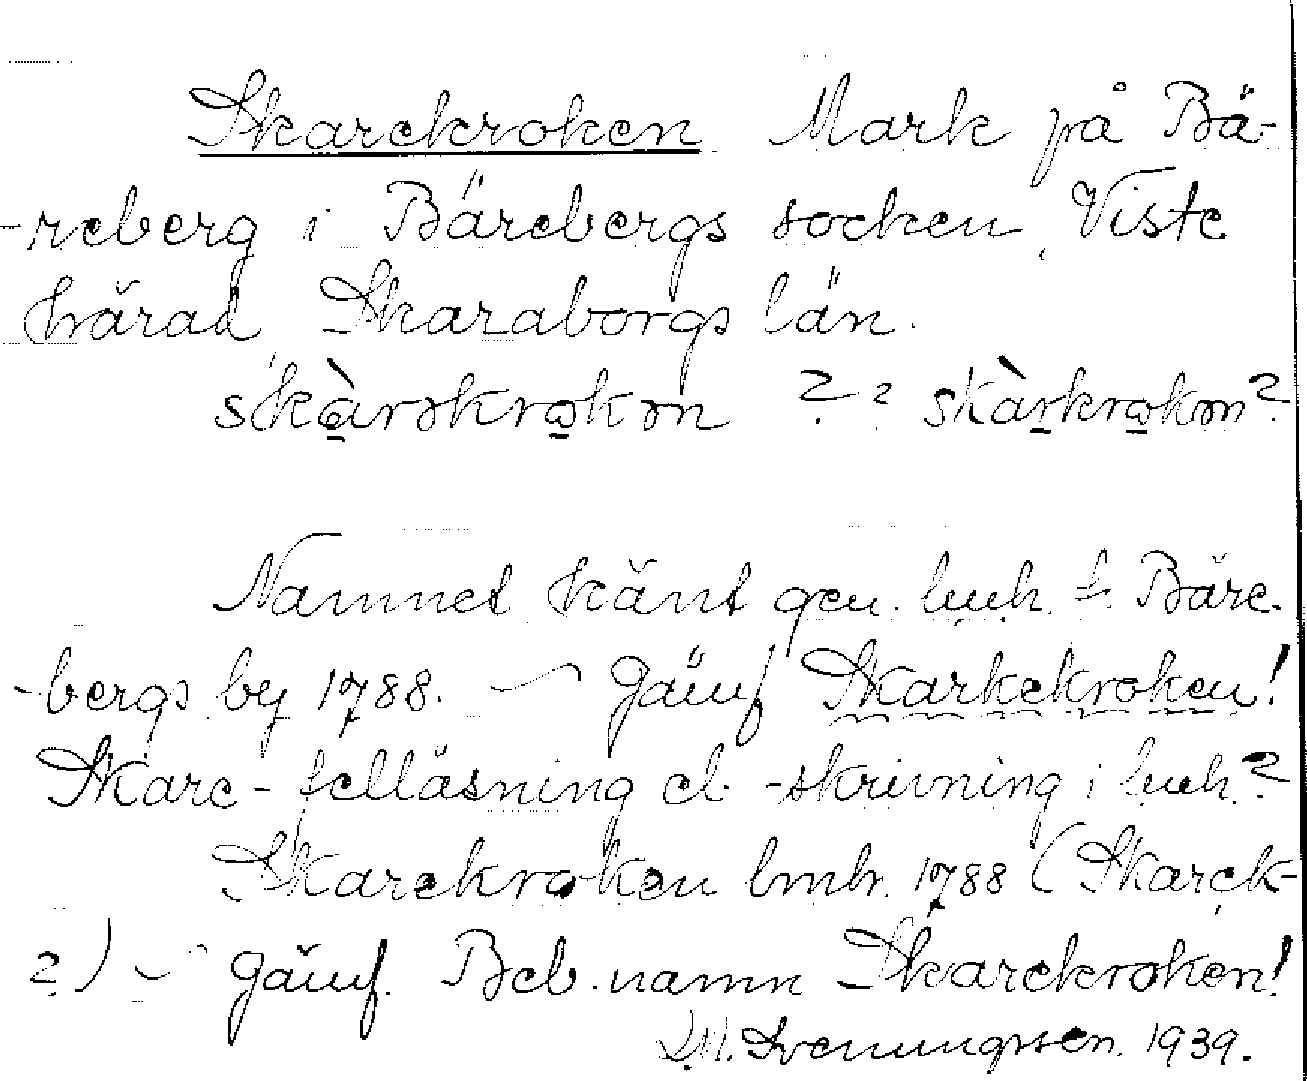 Skarekroken Mark på Bä-
-reberg i Bärebergs socken, Viste
härad, Skaraborgs län.
skàrəkrokən ? ? skàrkrokən?
Namnet känt gen. luh. f. Bäre-
-bergs by 1788. — Jämf Skarkekroken!
Skare- felläsning el. -skrivning i luh?
Skarekroken lmh. 1788 (Skarek-
?) — Jämf. Beb. namn Skarekroken!
D.M. Svenungssen. 1939.